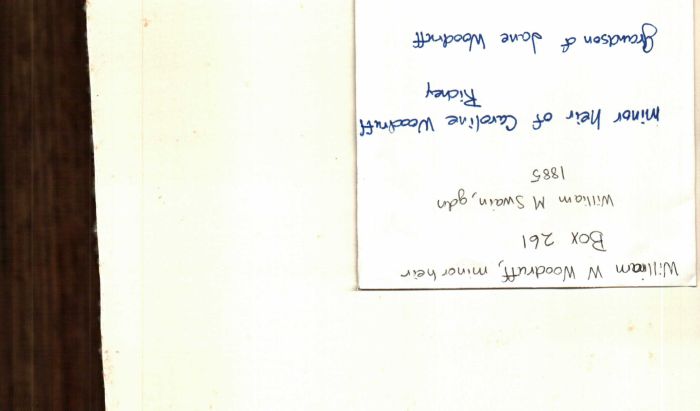 William W Woodruff, minor heir
Box 261
William M Swain, gdn
1885
minor heir of Caroline Woodruff
Ridney
grandson of Jane Woodruff